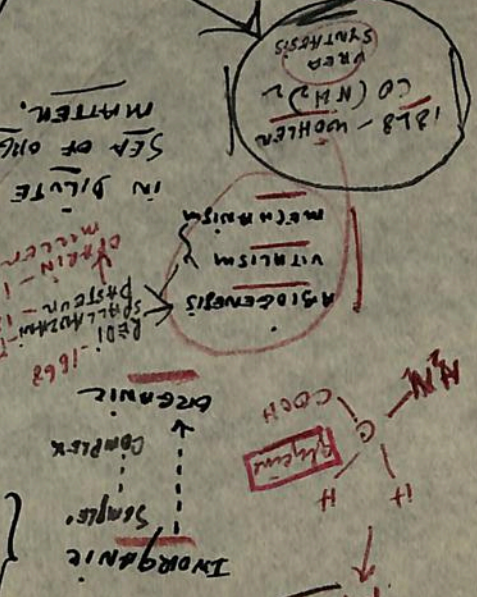 INORGANIC
SIMPLE
COMPLEX
ORGANIC
H
H
C
H2N
COOH
Glycine
REDI-1668
SPALLANZANI
PASTEUR
OPARIN
MILLER
ABIOGENESIS
VITALISM
MECHANISM
IN DILUTE
SEA OF ORG
MATTER.
1828-WOHLER
CO(NH2)2
UREA
SYNTHESIS